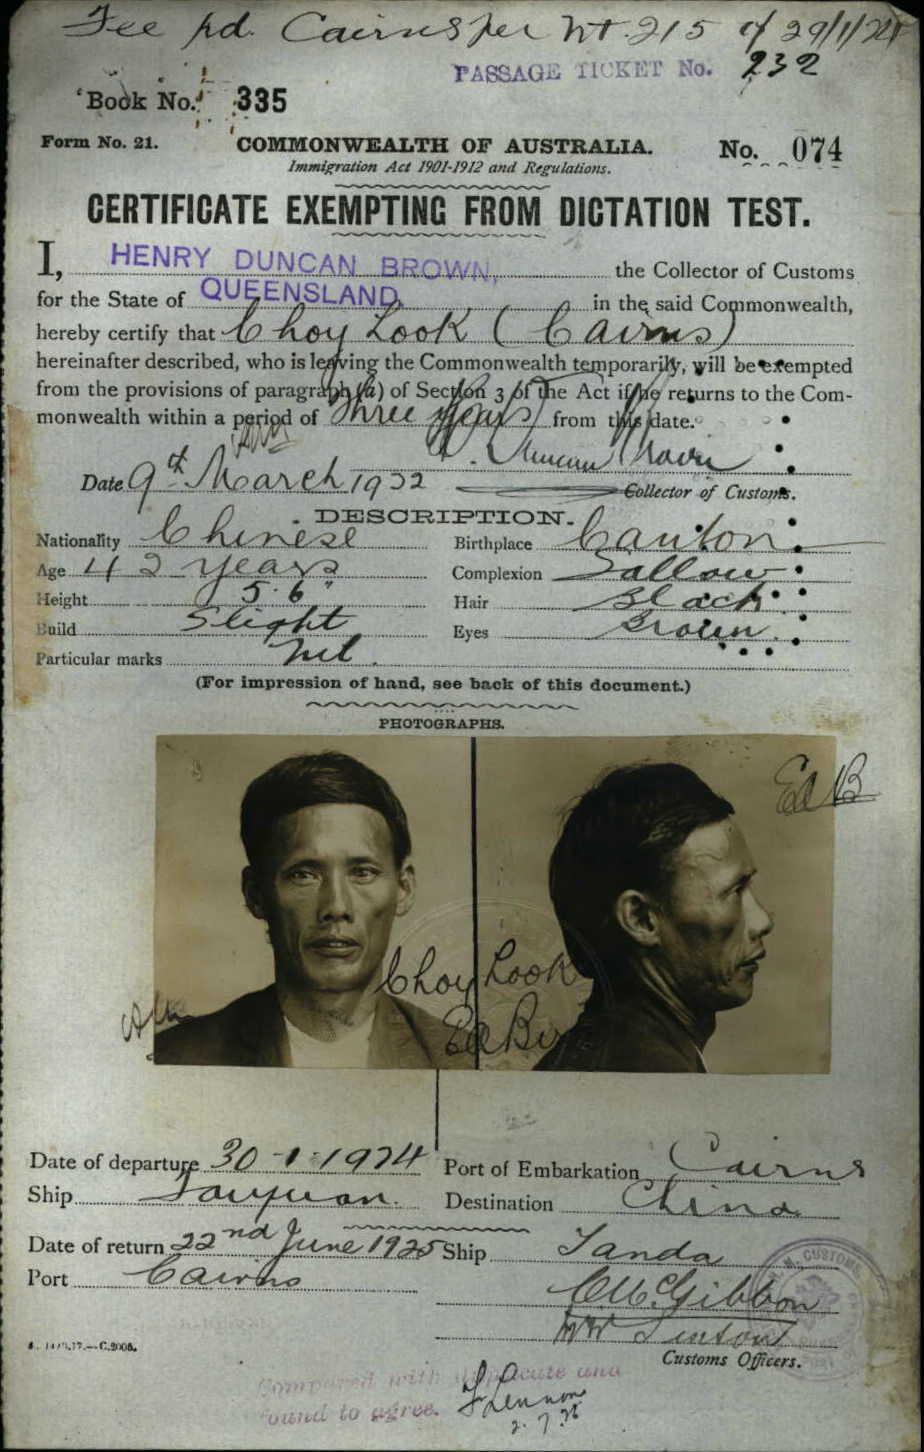 Fee pd. Cairns per Wt. 215 of 29/1/24
PASSAGE TICKET No. 232
Book No. 335
Form No. 21. COMMONWEALTH OF AUSTRALIA. No. 074
Immigration Act 1901-1912 and Regulations.
CERTIFICATE EXEMPTING FROM DICTATION TEST.
I, HENRY DUNCAN BROWN, the Collector of Customs
for the State of QUEENSLAND in the said Commonwealth,
hereby certify that Choy Look (Cairns)
hereinafter described, who is leaving the Commonwealth temporarily, will be exempted
from the provisions of paragraph (a) of Section 3 of the Act if he returns to the Com-
monwealth within a period of Three Years from this date.
H. Duncan Brown
Date 9th March 1922 Collector of Customs.
DESCRIPTION.
Nationality Chinese Birthplace Canton
Age 42 years Complexion Sallow
Height 5.6" Hair Black
Build Slight Eyes Brown
Particular marks Nil.
(For impression of hand, see back of this document.)
PHOTOGRAPHS.
Choy Look
Date of departure 30-1-1924 Port of Embarkation Cairns
Ship Taiyuan. Destination China
Date of return 22nd June 1925 Ship Tanda
Port Cairns
C McGibbon
Linton
Customs Officers.
CUSTOMS
Compared with duplicate and
found to agree. Lennon